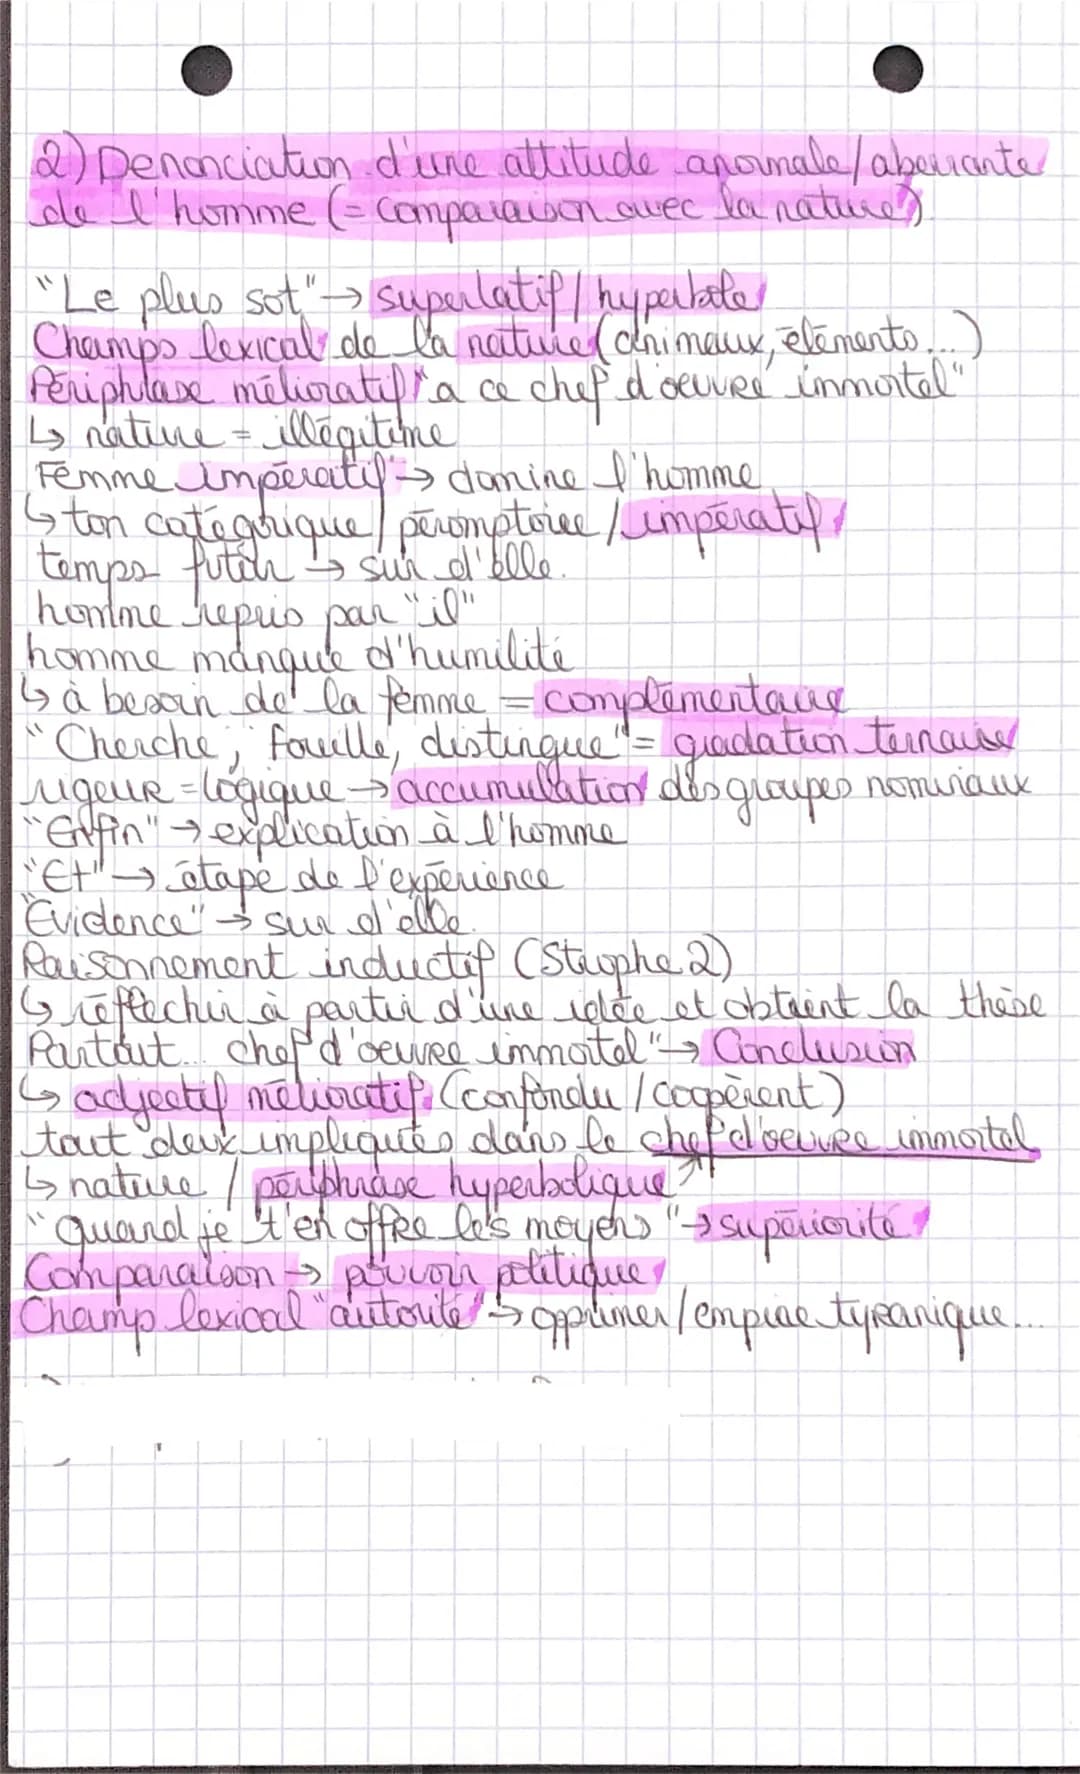 2) Denonciation d'une attitude anormale/aberrante
de l'homme (= comparaison avec la nature)
"Le plus sot" → superlatif / hyperbole
Champs lexical de la nature (animaux, éléments...)
Périphrase mélioratif "a ce chef d'oeuvre immortel"
↳ nature = illégitime
Femme impératif → domine l'homme
↳ ton catégorique / péromptoire / impératif
temps futur → sur d'elle.
homme repris par "il"
homme manque d'humilité
↳ à besoin de la femme = complémentaire
"Cherche, fouille, distingue" = gradation ternaire
rigeur = logique → accumulation des groupes nominaux
"Enfin" → explication à l'homme
"Et" → étape de l'expérience
"Evidence" → sur d'elle.
Raisonnement inductif (Strophe 2)
↳ réflechir à partir d'une idée et obtient la thèse
Partout... chef d'oeuvre immortel" → Conclusion
↳ adjectif mélioratif (confondu / coopèrent)
tout deux impliqués dans le chef d'oeuvre immortel
↳ nature / périphrase hyperbolique ↗
"quand je t'en offre les moyens" → supériorité
Comparaison → pouvoir politique
Champ lexical "autorité" → opprimer/empire tyranique...